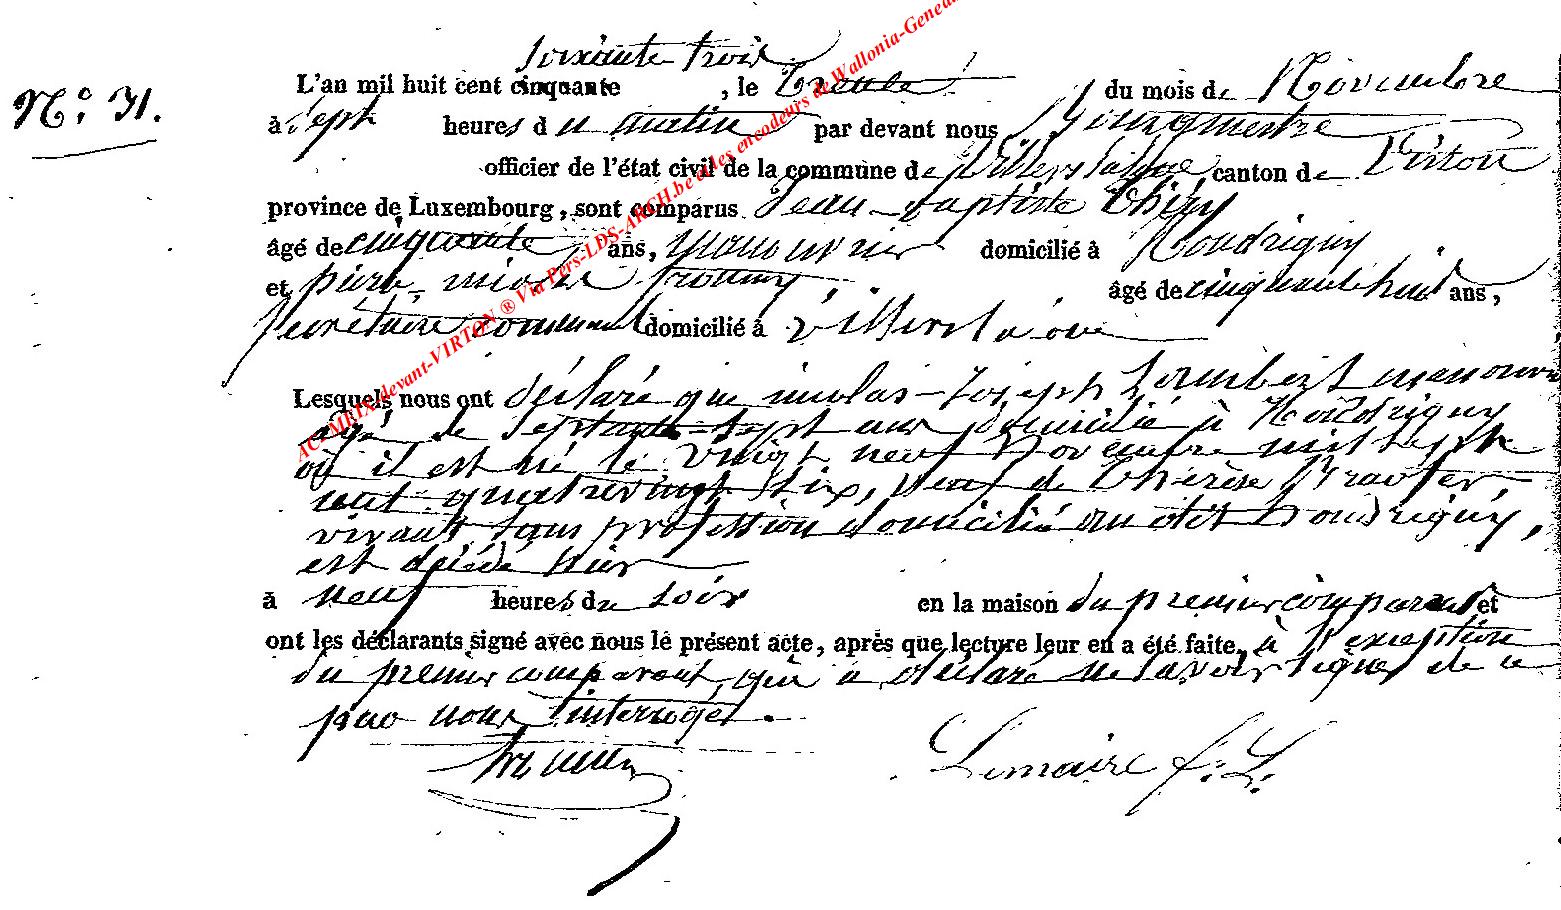 soixante trois
N.° 31.
L'an mil huit cent cinquante , le Trente du mois de Novembre
à sept heures du matin par devant nous Bourgmestre
officier de l'état civil de la commune de Villers la loue canton de Virton
province de Luxembourg, sont comparus Jean-baptiste thiry
âgé de cinquante ans, manouvrier domicilié à Houdrigny
et pierre michel âgé de cinquante huit ans,
secrétaire communal domicilié à Villers la loue
Lesquels nous ont déclaré que nicolas-Joseph Lambert manouvrier
agé de septante-sept ans domicilié à Houdrigny
où il est né le vingt neuf Novembre mil sept
cent quatrevingt six, veuf de thérèse
vivant sans profession domicilié au dit Houdrigny,
est décédé hier
à neuf heures du soir en la maison du premier comparant et
ont les déclarants signé avec nous le présent acte, après que lecture leur en a été faite, à l'exception
du premier comparant, qui a déclaré ne savoir signer de ce
par nous interrogé.
Lemaire f: L:
AC-MEIX-devant-VIRTON ® Via Pers-LDS-ARCH.be et les encodeurs de Wallonia-Genea